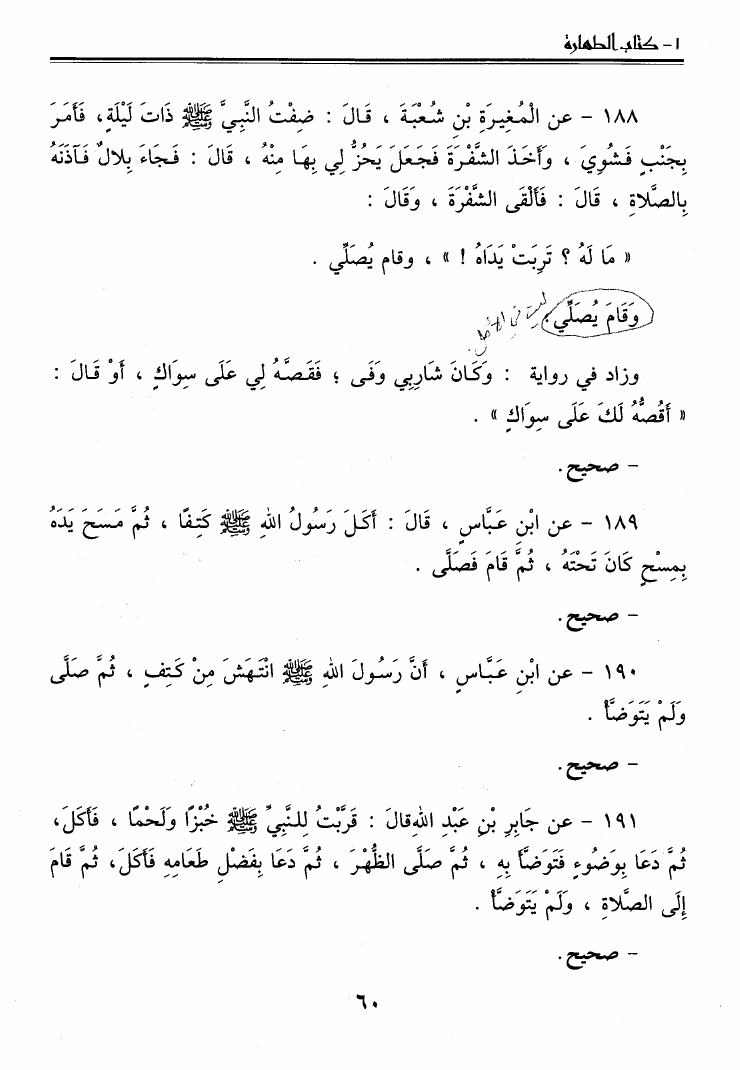 ١ - كتاب الطهارة
١٨٨ - عن الْمُغِيرَةِ بْنِ شُعْبَةَ ، قَالَ : ضِفْتُ النَّبِيَّ ﷺ ذَاتَ لَيْلَةٍ، فَأَمَرَ
بِجَنْبٍ فَشُوِيَ ، وَأَخَذَ الشَّفْرَةَ فَجَعَلَ يَحُزُّ لِي بِهَا مِنْهُ ، قَالَ : فَجَاءَ بِلَالٌ فَآذَنَهُ
بِالصَّلَاةِ ، قَالَ : فَأَلْقَى الشَّفْرَةَ ، وَقَالَ :
« مَا لَهُ ؟ تَرِبَتْ يَدَاهُ ! » ، وقام يُصَلِّي .
وَقَامَ يُصَلِّي . ليست في الأصل .
وزاد في رواية : وَكَانَ شَارِبِي وَفَى ؛ فَقَصَّهُ لِي عَلَى سِوَاكٍ ، أَوْ قَالَ :
« أَقُصُّهُ لَكَ عَلَى سِوَاكٍ » .
- صحيح.
١٨٩ - عن ابْنِ عَبَّاسٍ ، قَالَ : أَكَلَ رَسُولُ اللهِ ﷺ كَتِفًا ، ثُمَّ مَسَحَ يَدَهُ
بِمِسْحٍ كَانَ تَحْتَهُ ، ثُمَّ قَامَ فَصَلَّى .
- صحيح.
١٩٠ - عن ابْنِ عَبَّاسٍ ، أَنَّ رَسُولَ اللهِ ﷺ انْتَهَشَ مِنْ كَتِفٍ ، ثُمَّ صَلَّى
وَلَمْ يَتَوَضَّأْ .
- صحيح.
١٩١ - عن جَابِرِ بْنِ عَبْدِ اللهِ قَالَ : قَرَّبْتُ لِلنَّبِيِّ ﷺ خُبْزًا وَلَحْمًا ، فَأَكَلَ،
ثُمَّ دَعَا بِوَضُوءٍ فَتَوَضَّأَ بِهِ ، ثُمَّ صَلَّى الظُّهْرَ ، ثُمَّ دَعَا بِفَضْلِ طَعَامِهِ فَأَكَلَ، ثُمَّ قَامَ
إِلَى الصَّلَاةِ ، وَلَمْ يَتَوَضَّأْ .
- صحيح.
٦٠